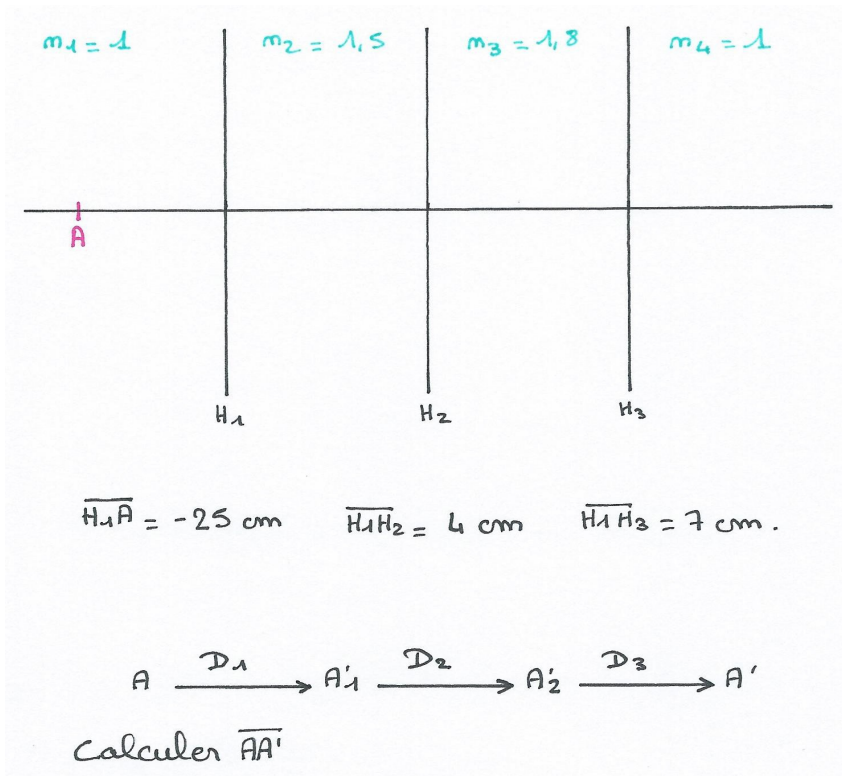 n1 = 1 n2 = 1,5 n3 = 1,8 n4 = 1
A
H1 H2 H3
H1A = -25 cm H1H2 = 4 cm H1H3 = 7 cm.
A D1 A'1 D2 A'2 D3 A'
Calculer AA'